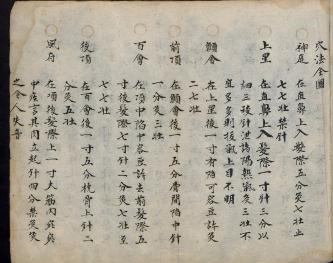 穴法全圖
神庭
在直鼻上入髮際五分灸七壯止
七七壯禁針
上星
在直鼻上入髮際一寸針三分以
細三稜針泄諸陽熱氣灸三壯不
宜多多則拔氣上目不明
顖會
在上星後一寸有陷可容豆許灸
二七壯
前頂
在顖會後一寸五分骨間陷中針
一分灸三壯
百會
在頂中陷中容豆許去前髮際五
寸後髮際七寸針二分灸七壯至
七七壯
後頂
在百會後一寸五分枕骨上針二
分灸五壯
風府
在項後髮際上一寸大筋內宛宛
中疾言其肉立起針四分禁灸灸
之令人失音